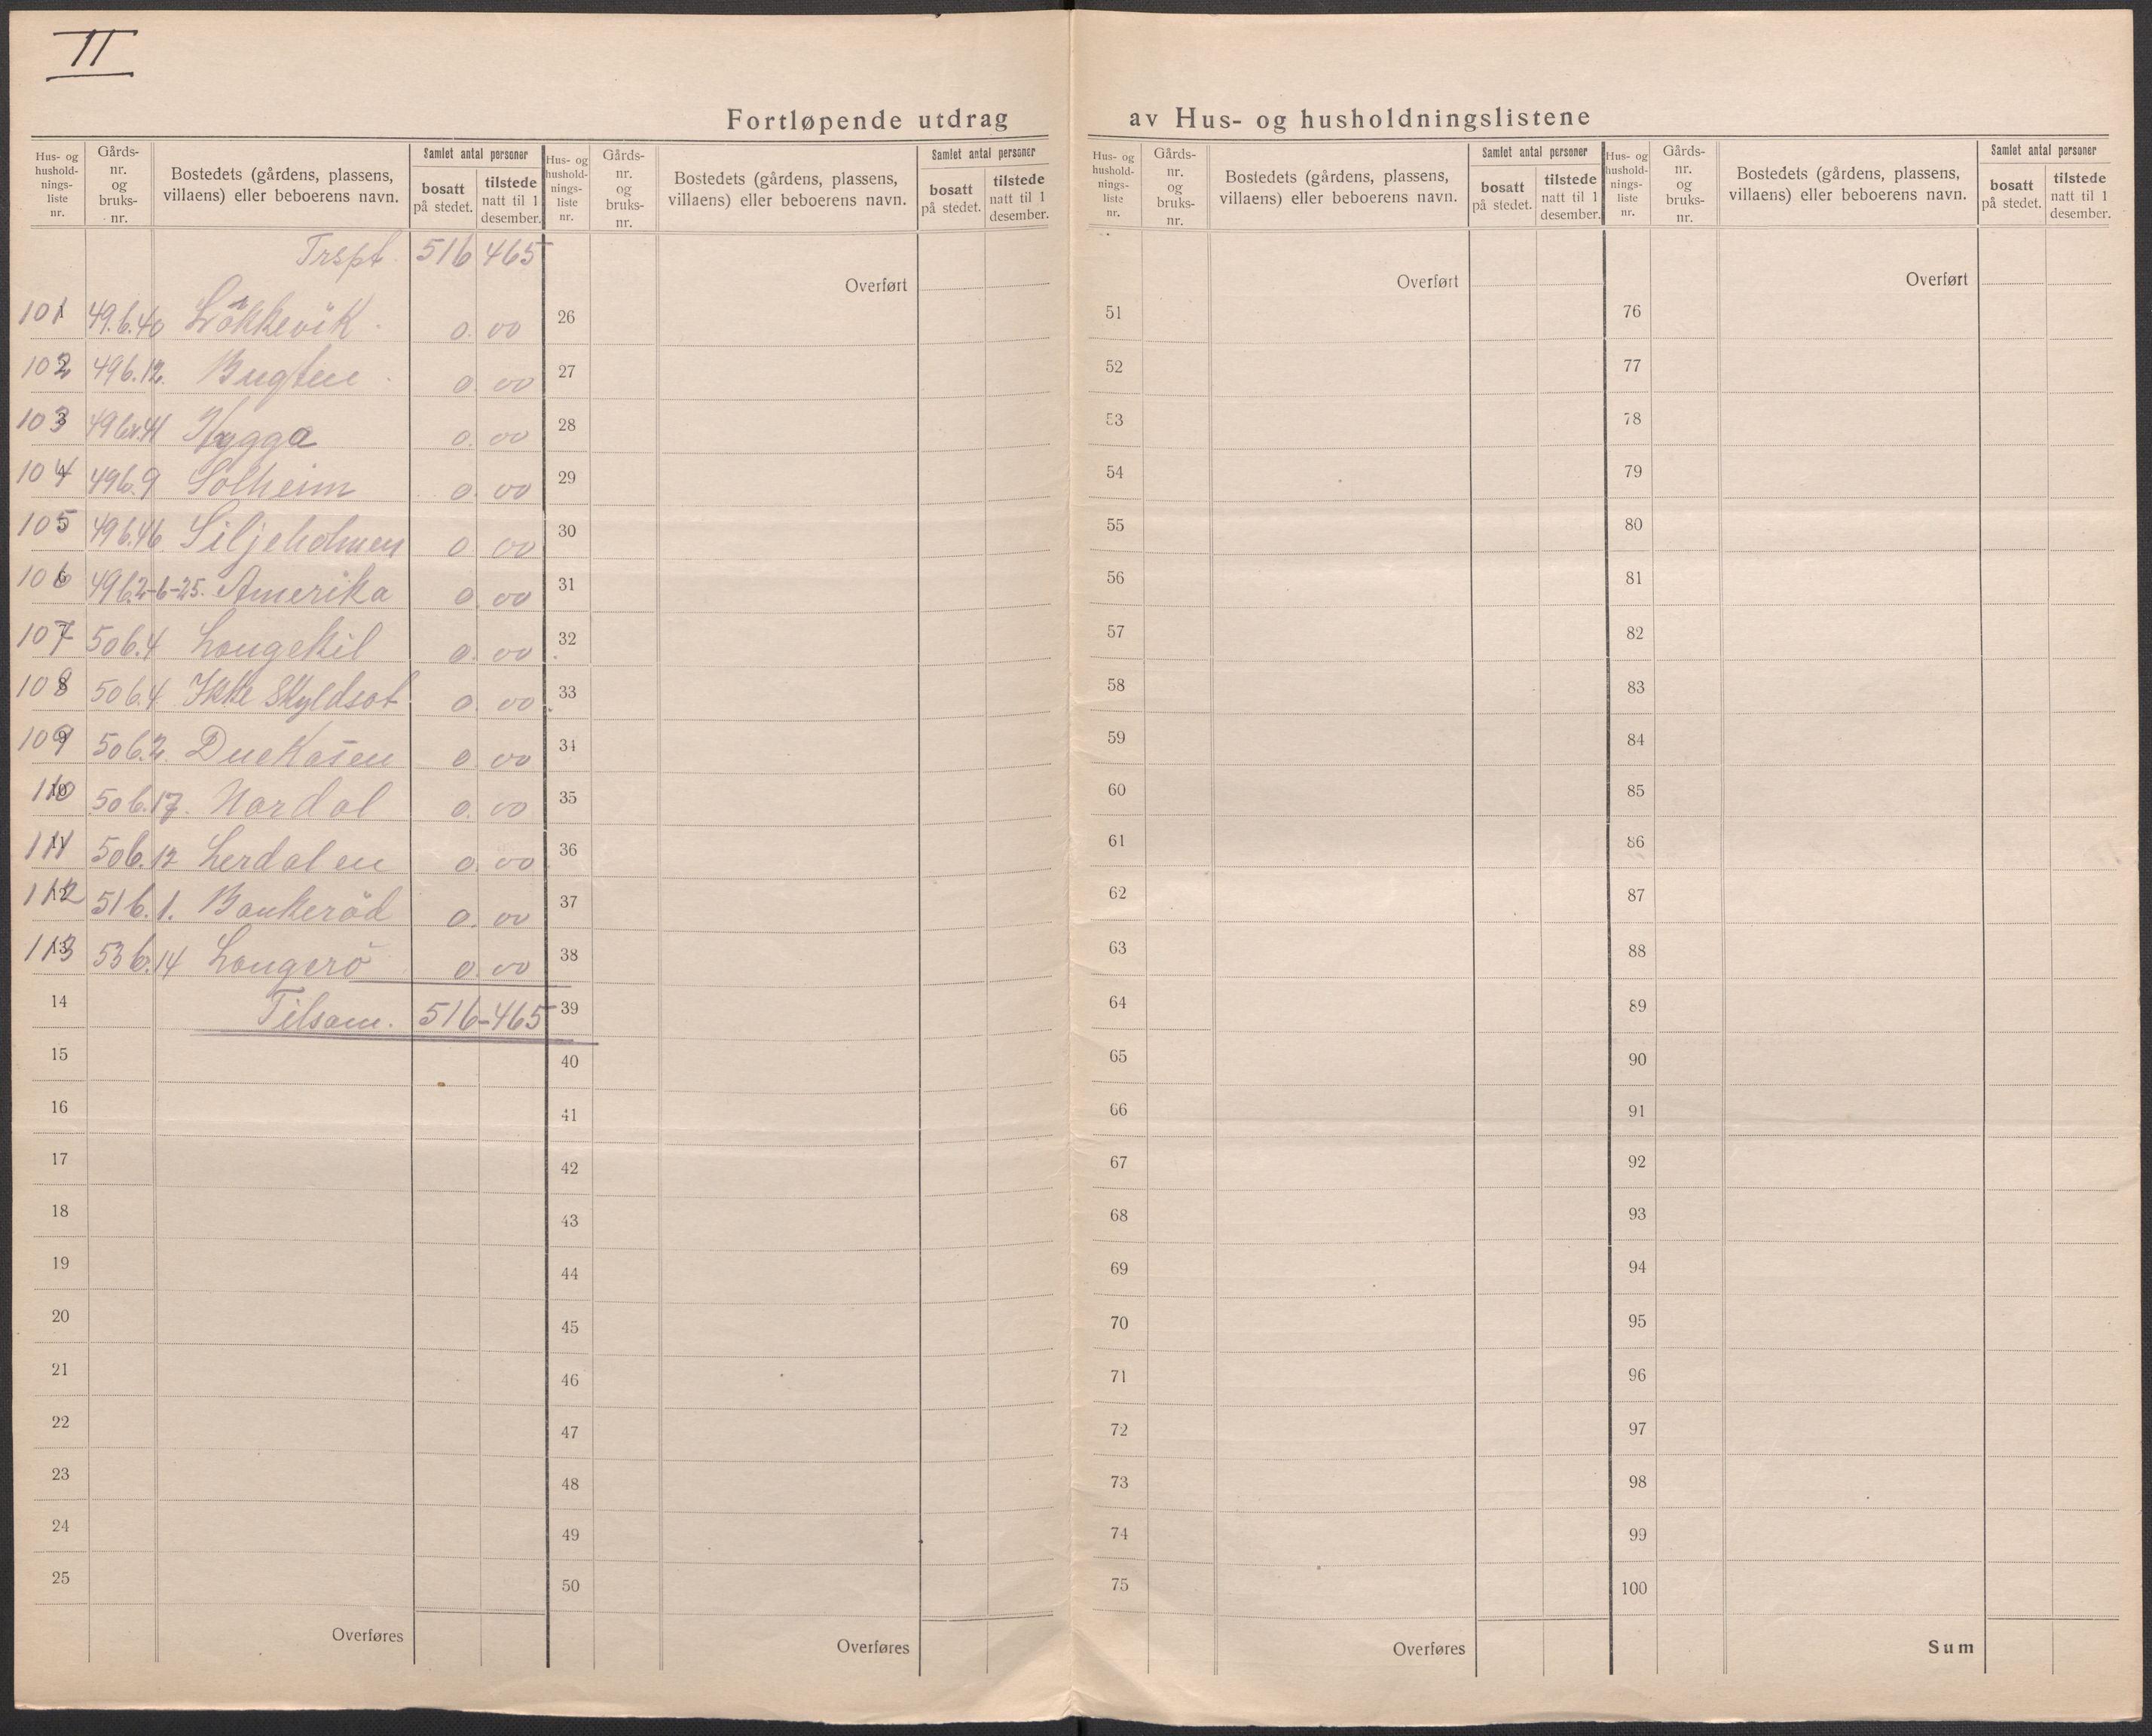 II
Fortløpende utdrag av Hus- og husholdningslistene
Hus- og hushold-nings-liste nr. | Gårds-nr. og bruks-nr. | Bostedets (gårdens, plassens, villaens) eller beboerens navn. | Samlet antal personer | bosatt på stedet. | tilstede natt til 1 desember.
Trspt. 516 465
101 49.b.40 Løkkevik 0. 00
102 49b.12. Bugten 0. 00
103 49br.41 Hygga 0. 00
104 49b.9 Solheim 0. 00
105 49b.46 Siljeholmen 0 00
106 49b.2-6-25. Amerika 0 00
107 50b.4 Langekil 0. 00
108 50b.4 Ikke Skyldsat 0. 00
109 50b.2. Duekasen 0 00
110 50b.17. Nordal 0. 00
111 50b.12 Lerdalen 0. 00
112 51b.1. Bankeröd 0. 00
113 53b.14 Langerö 0. 00
14 Tilsam. 516-465
15
16
17
18
19
20
21
22
23
24
25
Overføres
Hus- og hushold-nings-liste nr. | Gårds-nr. og bruks-nr. | Bostedets (gårdens, plassens, villaens) eller beboerens navn. | Samlet antal personer | bosatt på stedet. | tilstede natt til 1 desember.
Overført
26
27
28
29
30
31
32
33
34
35
36
37
38
39
40
41
42
43
44
45
46
47
48
49
50
Overføres
Hus- og hushold-nings-liste nr. | Gårds-nr. og bruks-nr. | Bostedets (gårdens, plassens, villaens) eller beboerens navn. | Samlet antal personer | bosatt på stedet. | tilstede natt til 1 desember.
Overført
51
52
53
54
55
56
57
58
59
60
61
62
63
64
65
66
67
68
69
70
71
72
73
74
75
Overføres
Hus- og hushold-nings-liste nr. | Gårds-nr. og bruks-nr. | Bostedets (gårdens, plassens, villaens) eller beboerens navn. | Samlet antal personer | bosatt på stedet. | tilstede natt til 1 desember.
Overført
76
77
78
79
80
81
82
83
84
85
86
87
88
89
90
91
92
93
94
95
96
97
98
99
100
Sum